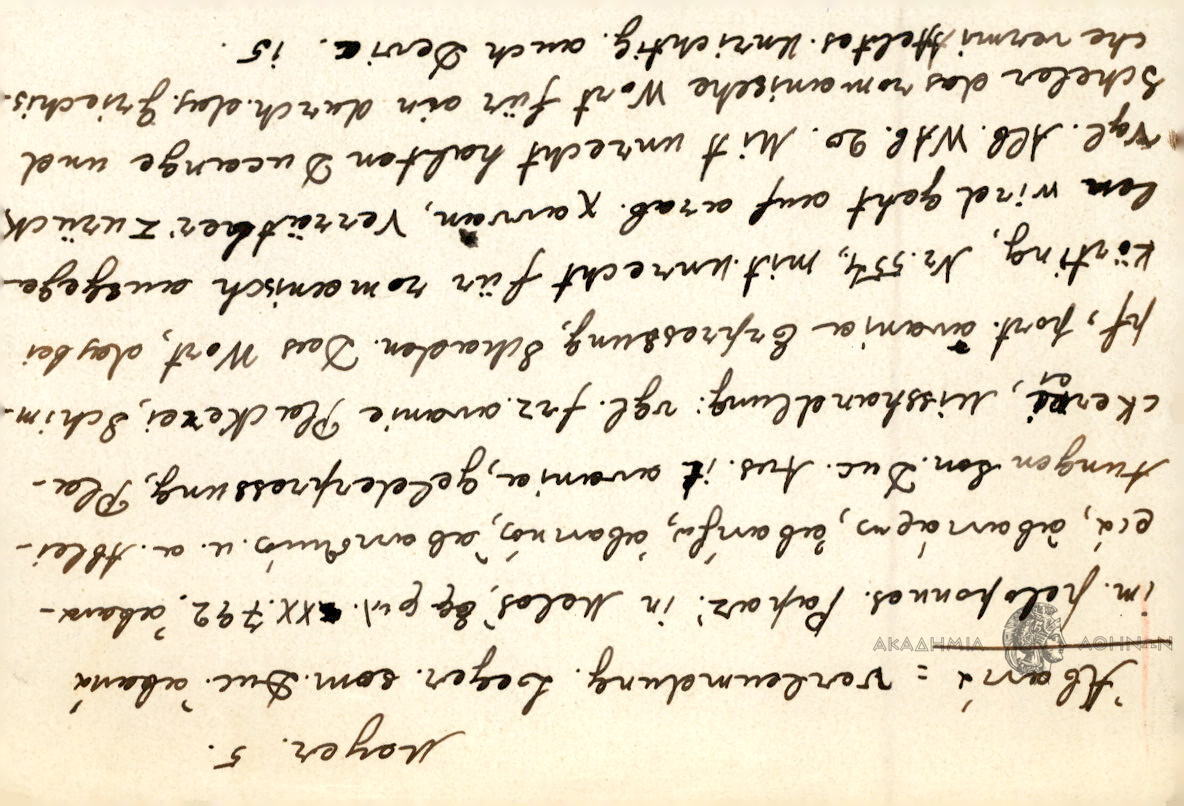 Mayer. 5.
Ἀβανιὰ = Verleumdung. Leger. som. Duc. ἀβανιά
ΑΚΑΔΗΜΙΑ ΑΘΗΝΩΝ
im peloponnes. Papaz. in Melos, Ἐφ φιλ. XX. 792. ἀβανι-
ειά, ἀβανιάρης, ἀβανίζω, ἀβανιός, u. a. Ablei-
tungen Son. Duc. Aus. it avania, gelderpressung, Pla-
ckerei, Misshandlung: vgl. frz. avanie Plackerei, Schim-
pf, port. avania Erpressung, Schaden. Das Wort, das bei
Körting, Nr. 554, mit unrecht für romanisch ausgege-
ben wird geht auf arab. χawan, Verräther zurück
Vgl. Alb. Wtb. 20. Mit unrecht halten Ducange und
Scheler das romanische Wort für ein durch das Griechis-
che vermitteltes. Unrichtig. auch Devic. 15.